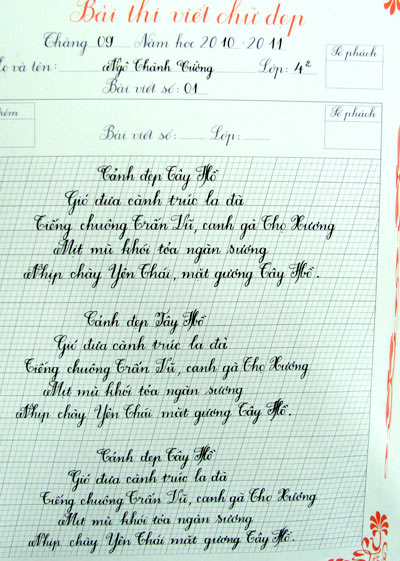 Bài thi viết chữ đẹp
Tháng 09 Năm học 2010-2011
Họ và tên: Ngô Thành Cường Lớp: 4²
Số phách
Bài viết số: 01
Điểm
Số phách
Bài viết số: Lớp:
Cảnh đẹp Tây Hồ
Gió đưa cành trúc la đà
Tiếng chuông Trấn Vũ, canh gà Thọ Xương
Mịt mù khói tỏa ngàn sương
Nhịp chày Yên Thái, mặt gương Tây Hồ.
Cảnh đẹp Tây Hồ
Gió đưa cành trúc la đà
Tiếng chuông Trấn Vũ, canh gà Thọ Xương
Mịt mù khói tỏa ngàn sương
Nhịp chày Yên Thái mặt gương Tây Hồ.
Cảnh đẹp Tây Hồ
Gió đưa cành trúc la đà
Tiếng chuông Trấn Vũ, canh gà Thọ Xương
Mịt mù khói tỏa ngàn sương
Nhịp chày Yên Thái mặt gương Tây Hồ.